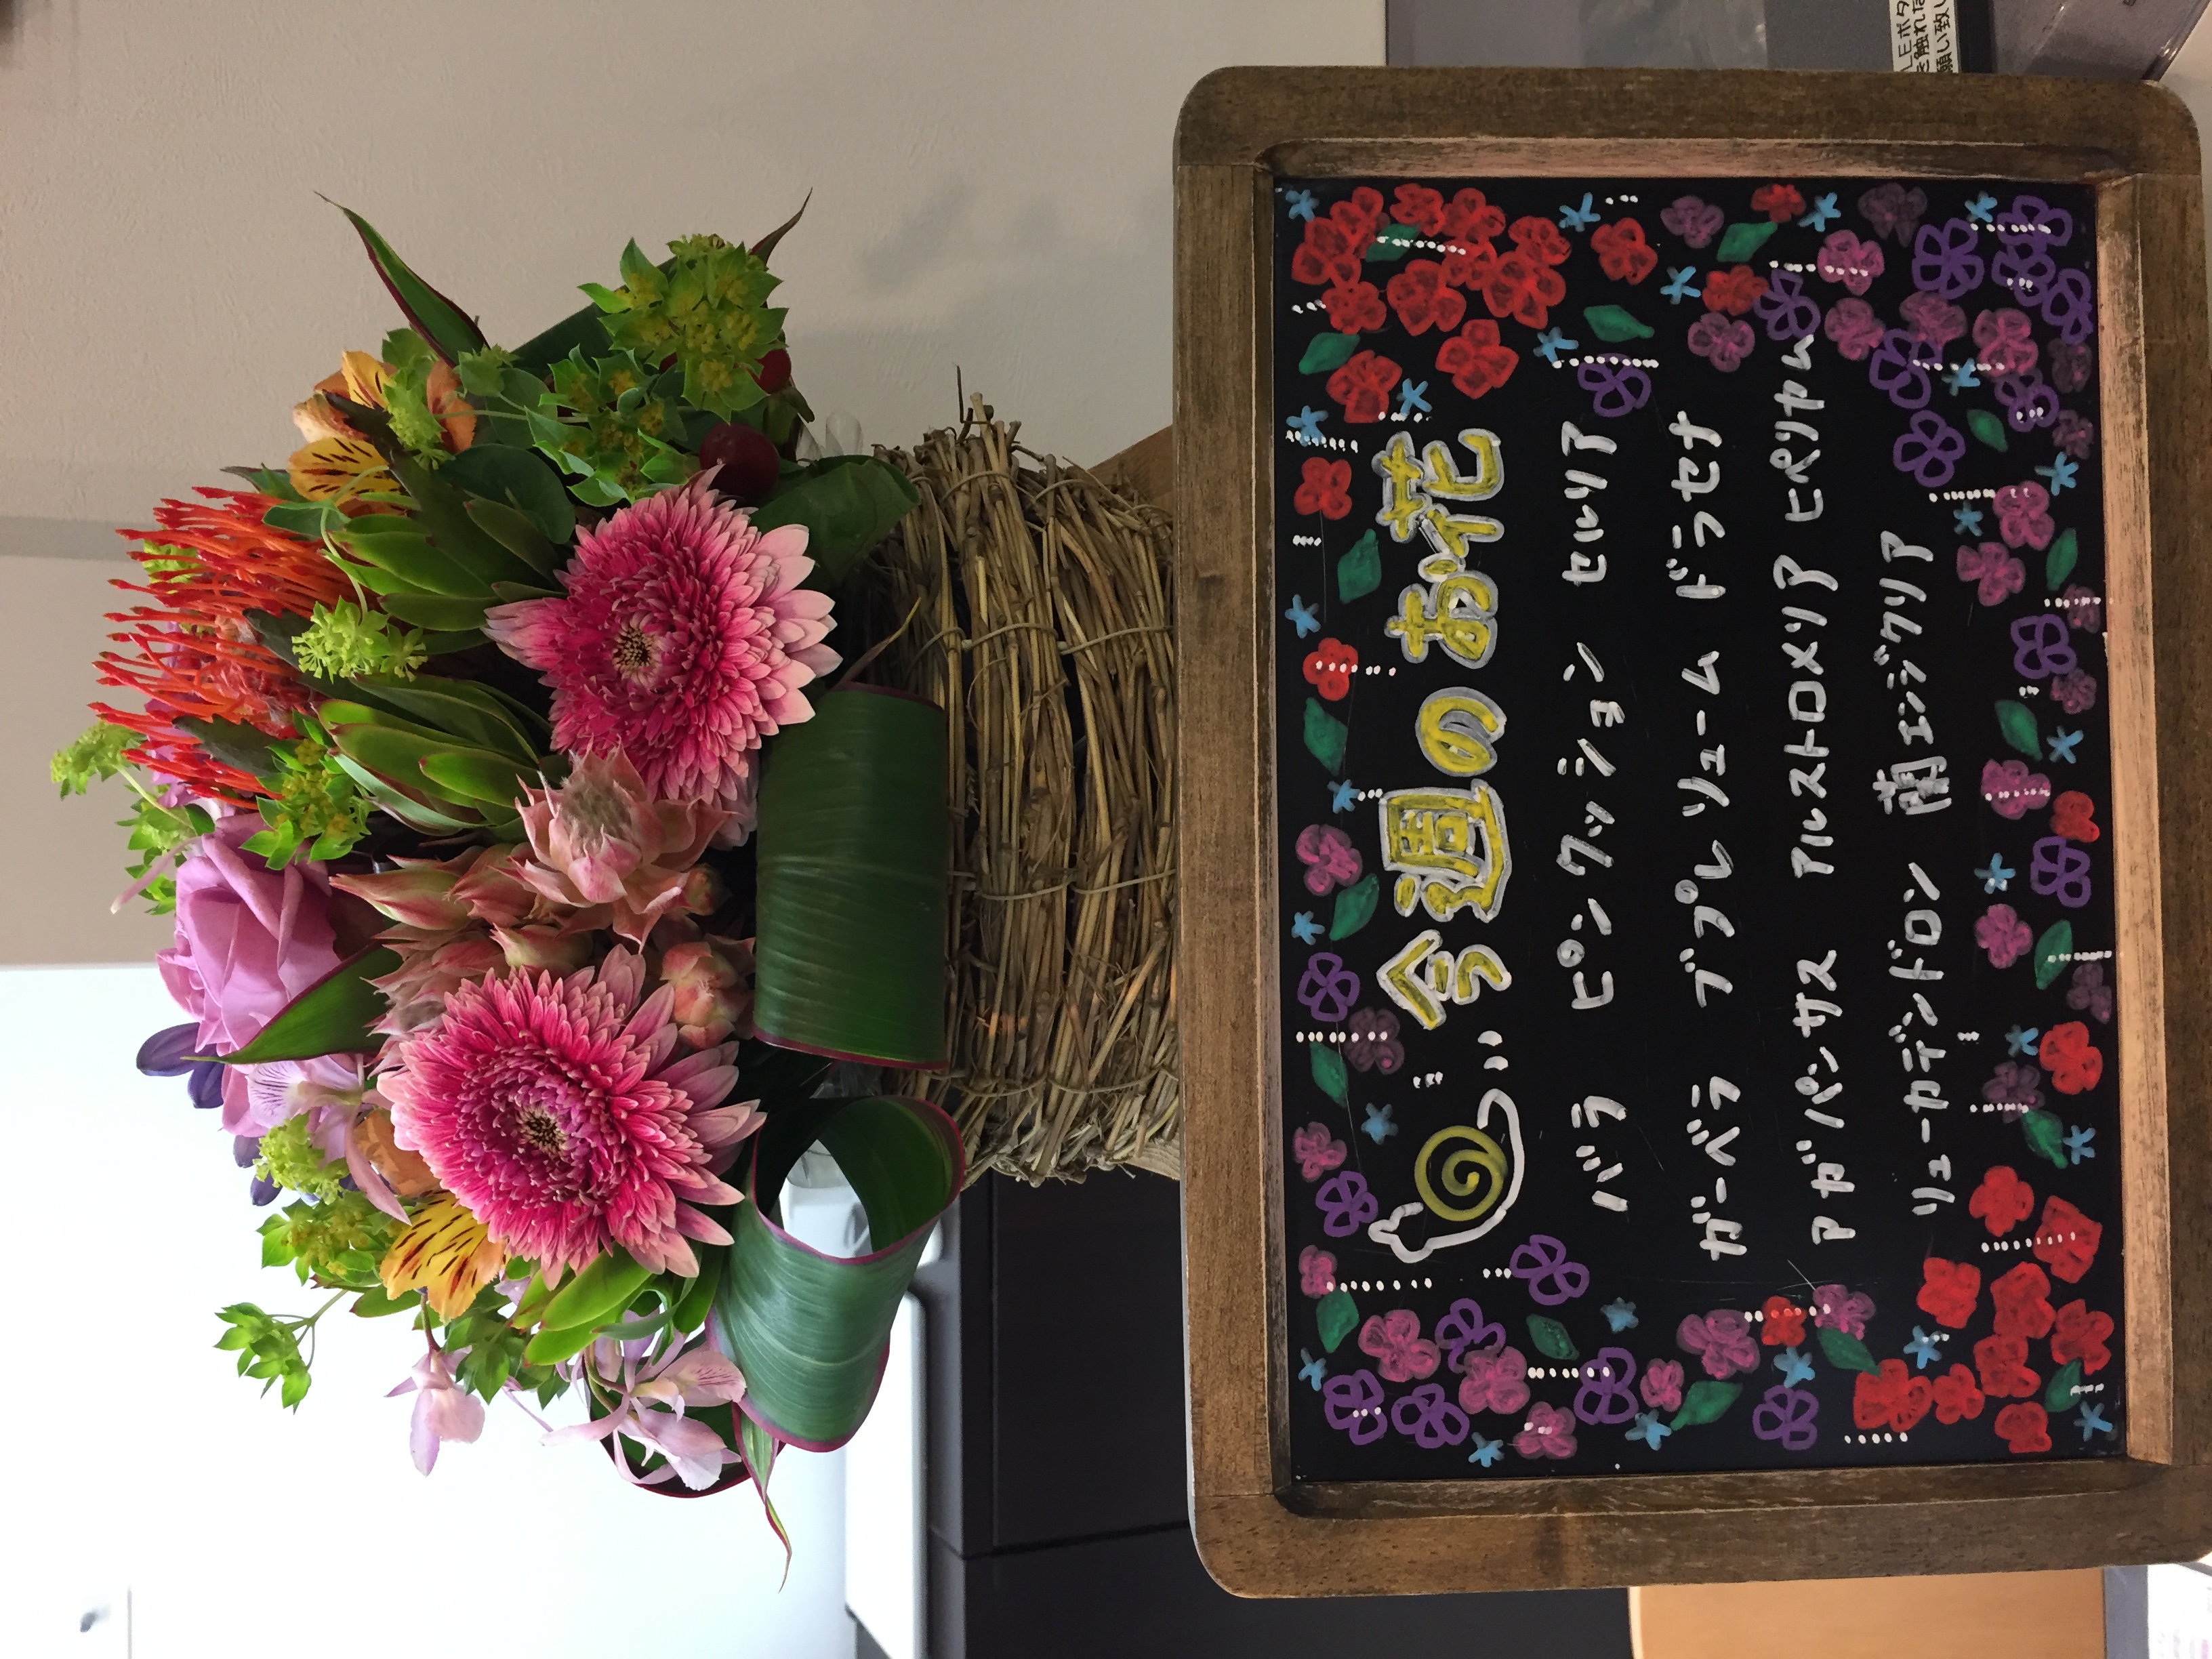 今週のお花
バラ ピンクッション セルリア
ガーベラ ブプレリューム ドラセナ
アガパンサス アルストロメリア ヒペリカム
リューカデンドロン 蘭エンジクリア
LEボタ
を触れな
願い致し